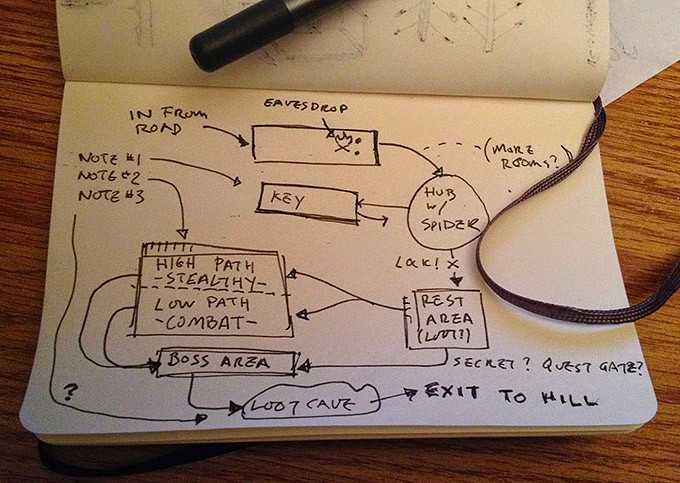 EAVESDROP
IN FROM
ROAD
(MORE
ROOMS?)
NOTE #1
NOTE #2
NOTE #3
KEY
HUB
W/
SPIDER
LOCK! X
HIGH PATH
-STEALTHY-
LOW PATH
-COMBAT-
REST
AREA
(LOOT?)
BOSS AREA
SECRET? QUEST GATE?
?
LOOT CAVE
EXIT TO HILL